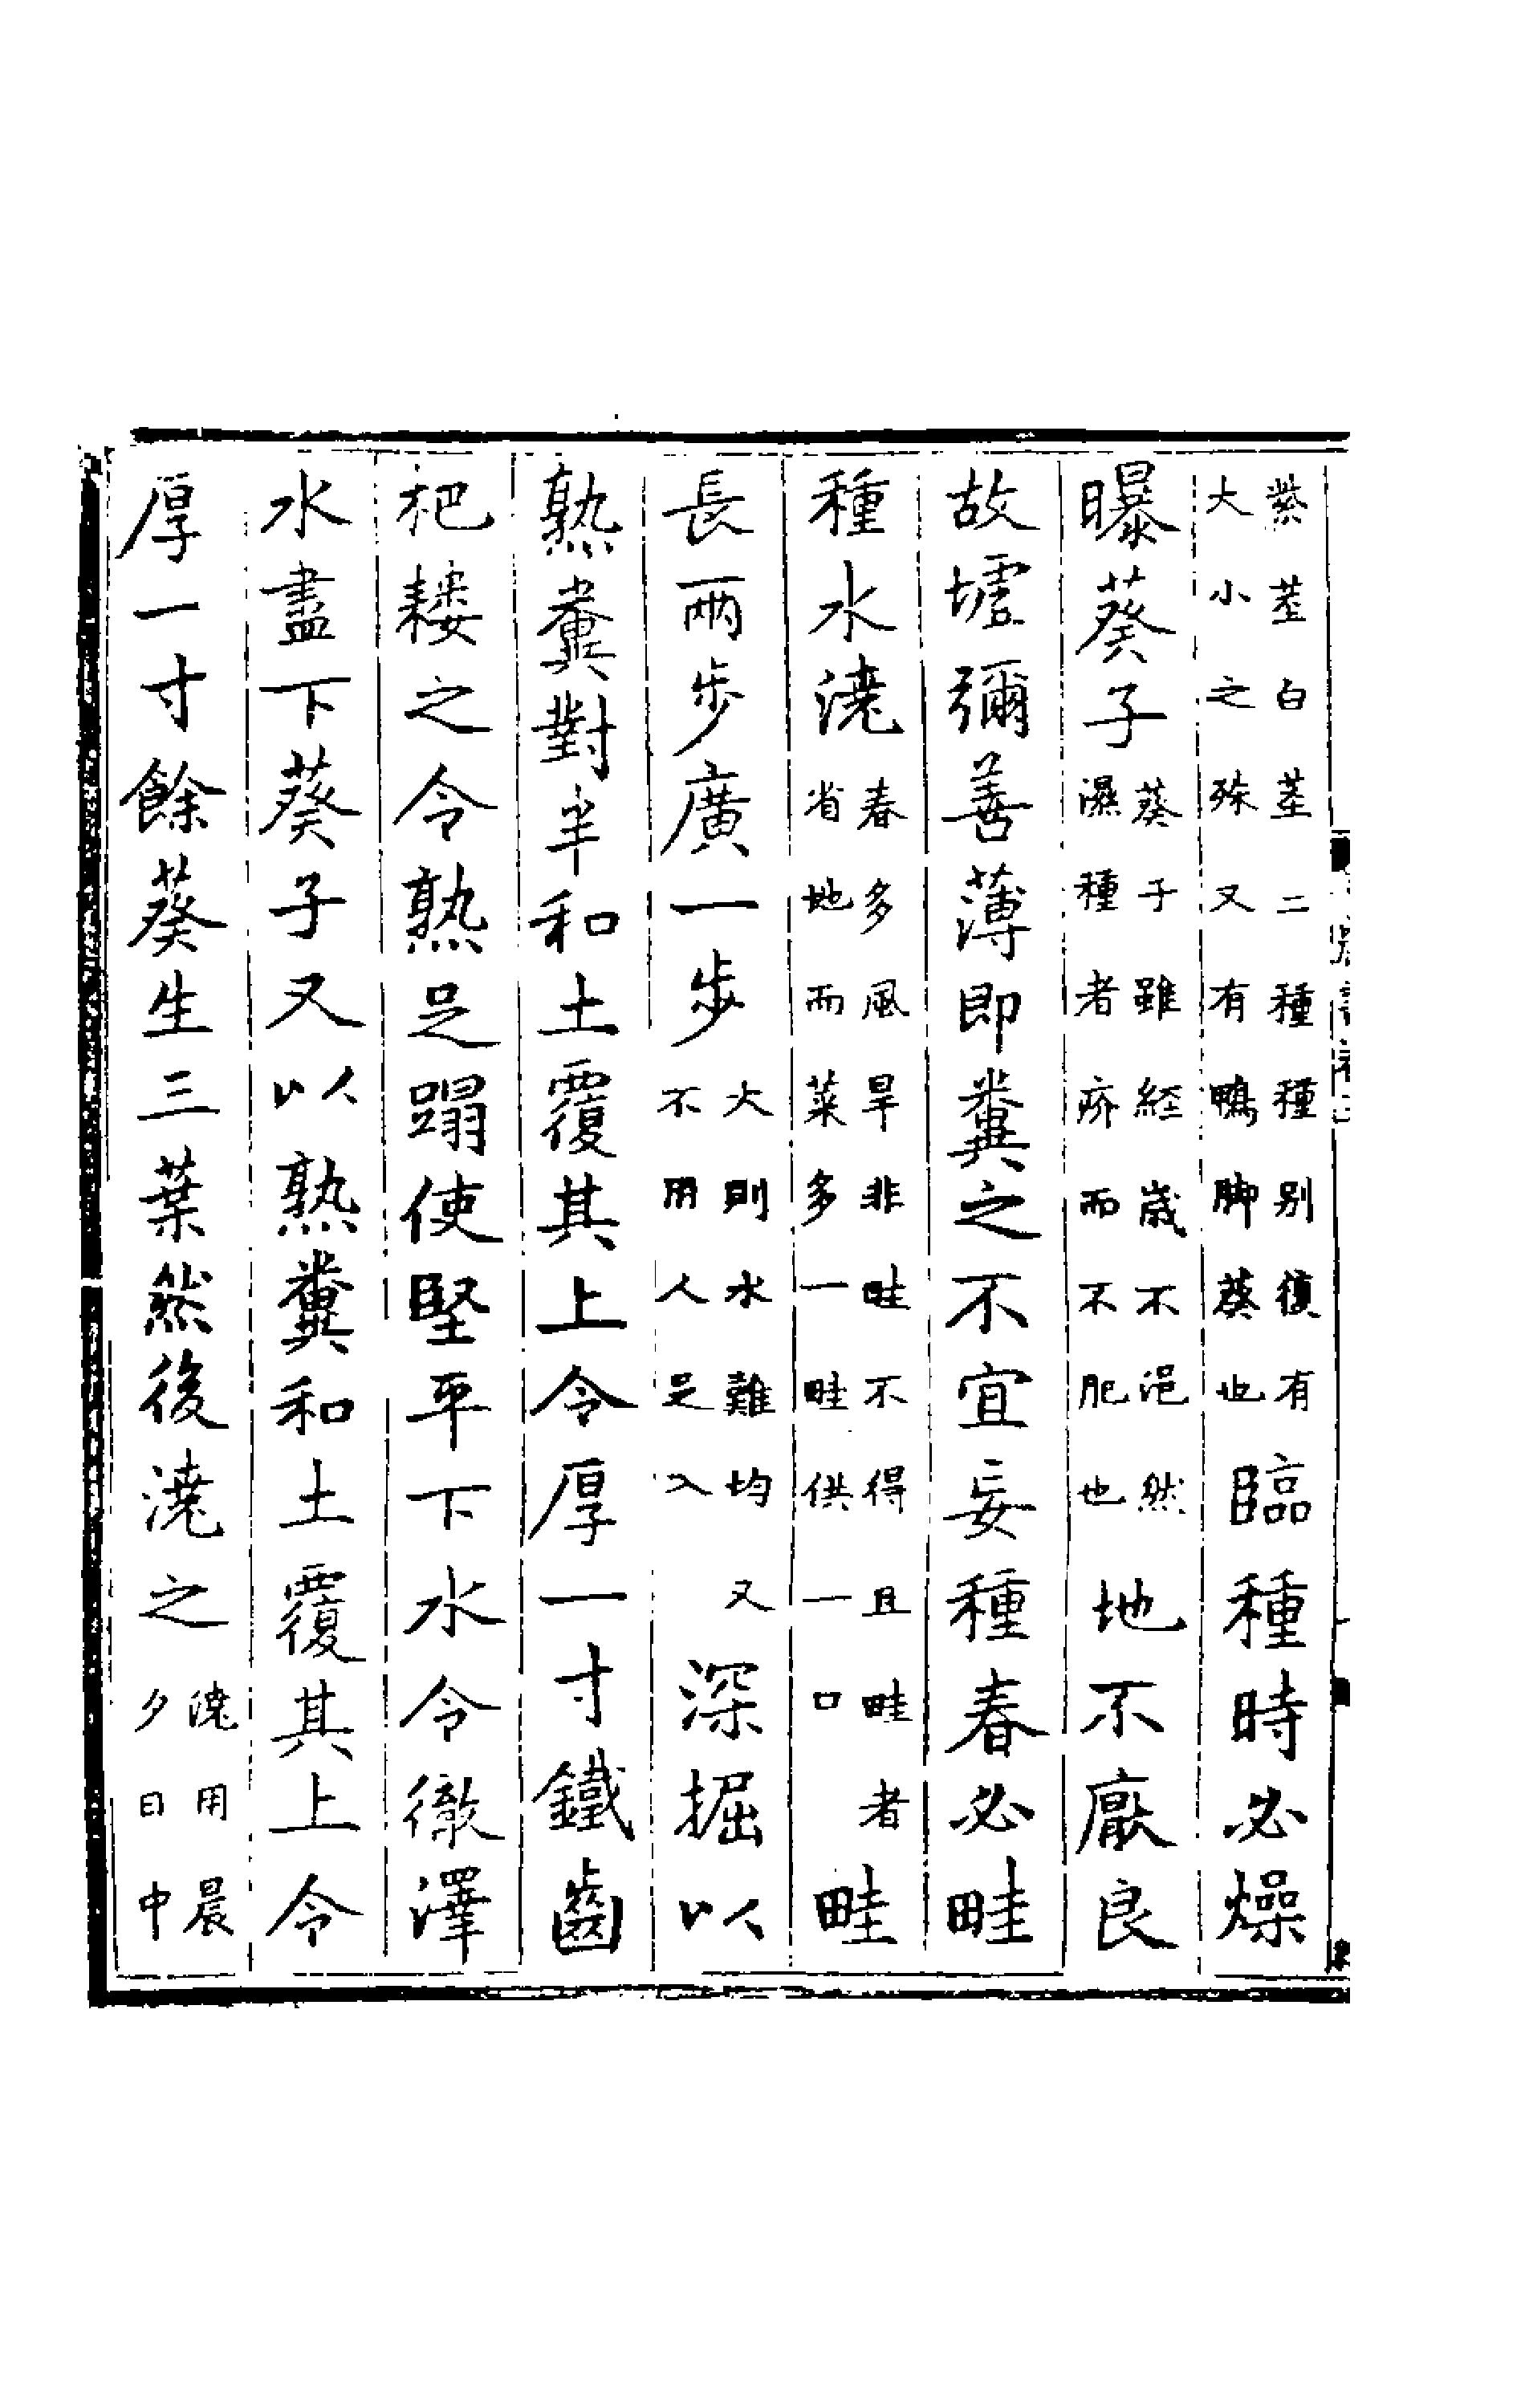 紫莖白莖二種種别復有大小之殊又有鴨脚葵也臨種時必燥
曝葵子葵子雖經歲不浥然濕種者疥而不肥也地不厭良
故墟彌善薄即糞之不宜妄種春必畦
種水澆春多風旱非畦不得且畦者省地而菜多一畦供一口畦
長兩步廣一步大則水難均又不用人足入深掘以
熟糞對半和土覆其上令厚一寸鐵齒
杷耬之令熟足蹋使堅平下水令徹澤
水盡下葵子又以熟糞和土覆其上令
厚一寸餘葵生三葉然後澆之澆用晨夕日中